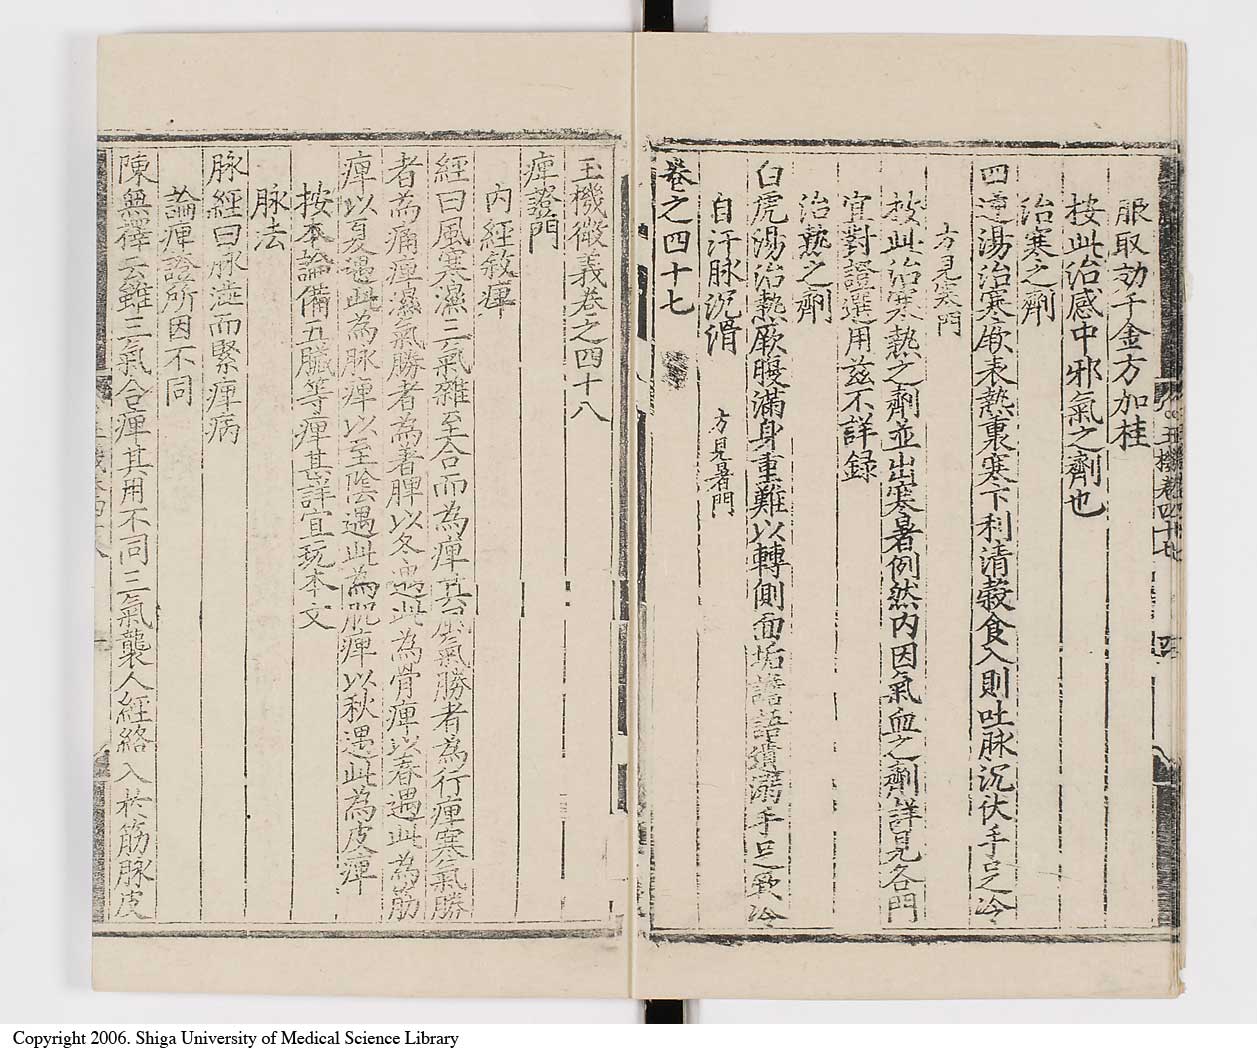 服取効千金方加桂
按此治感中邪氣之劑也
治寒之劑
四逆湯治寒厥表熱裏寒下利清穀食入則吐脉沉伏手足冷
方見寒門
按此治寒熱之劑並出寒暑例然内因氣血之劑詳見各門
宜對證選用兹不詳録
治熱之劑
白虎湯治熱厥腹滿身重難以轉側面垢譫語遺溺手足厥冷
自汗脉沉滑 方見暑門
卷之四十七
玉機微義卷之四十八
痺證門
内經敘痺
經曰風寒濕三氣雜至合而為痺其風氣勝者為行痺寒氣勝
者為痛痺濕氣勝者為着痺以冬遇此為骨痺以春遇此為筋
痺以夏遇此為脉痺以至陰遇此為肌痺以秋遇此為皮痺
按本論備五臟等痺甚詳宜玩本文
脉法
脉經曰脉澁而緊痺病
論痺證所因不同
陳無擇云雖三氣合痺其用不同三氣襲人經絡入於筋脉皮
玉機卷四十七
Copyright 2006. Shiga University of Medical Science Library